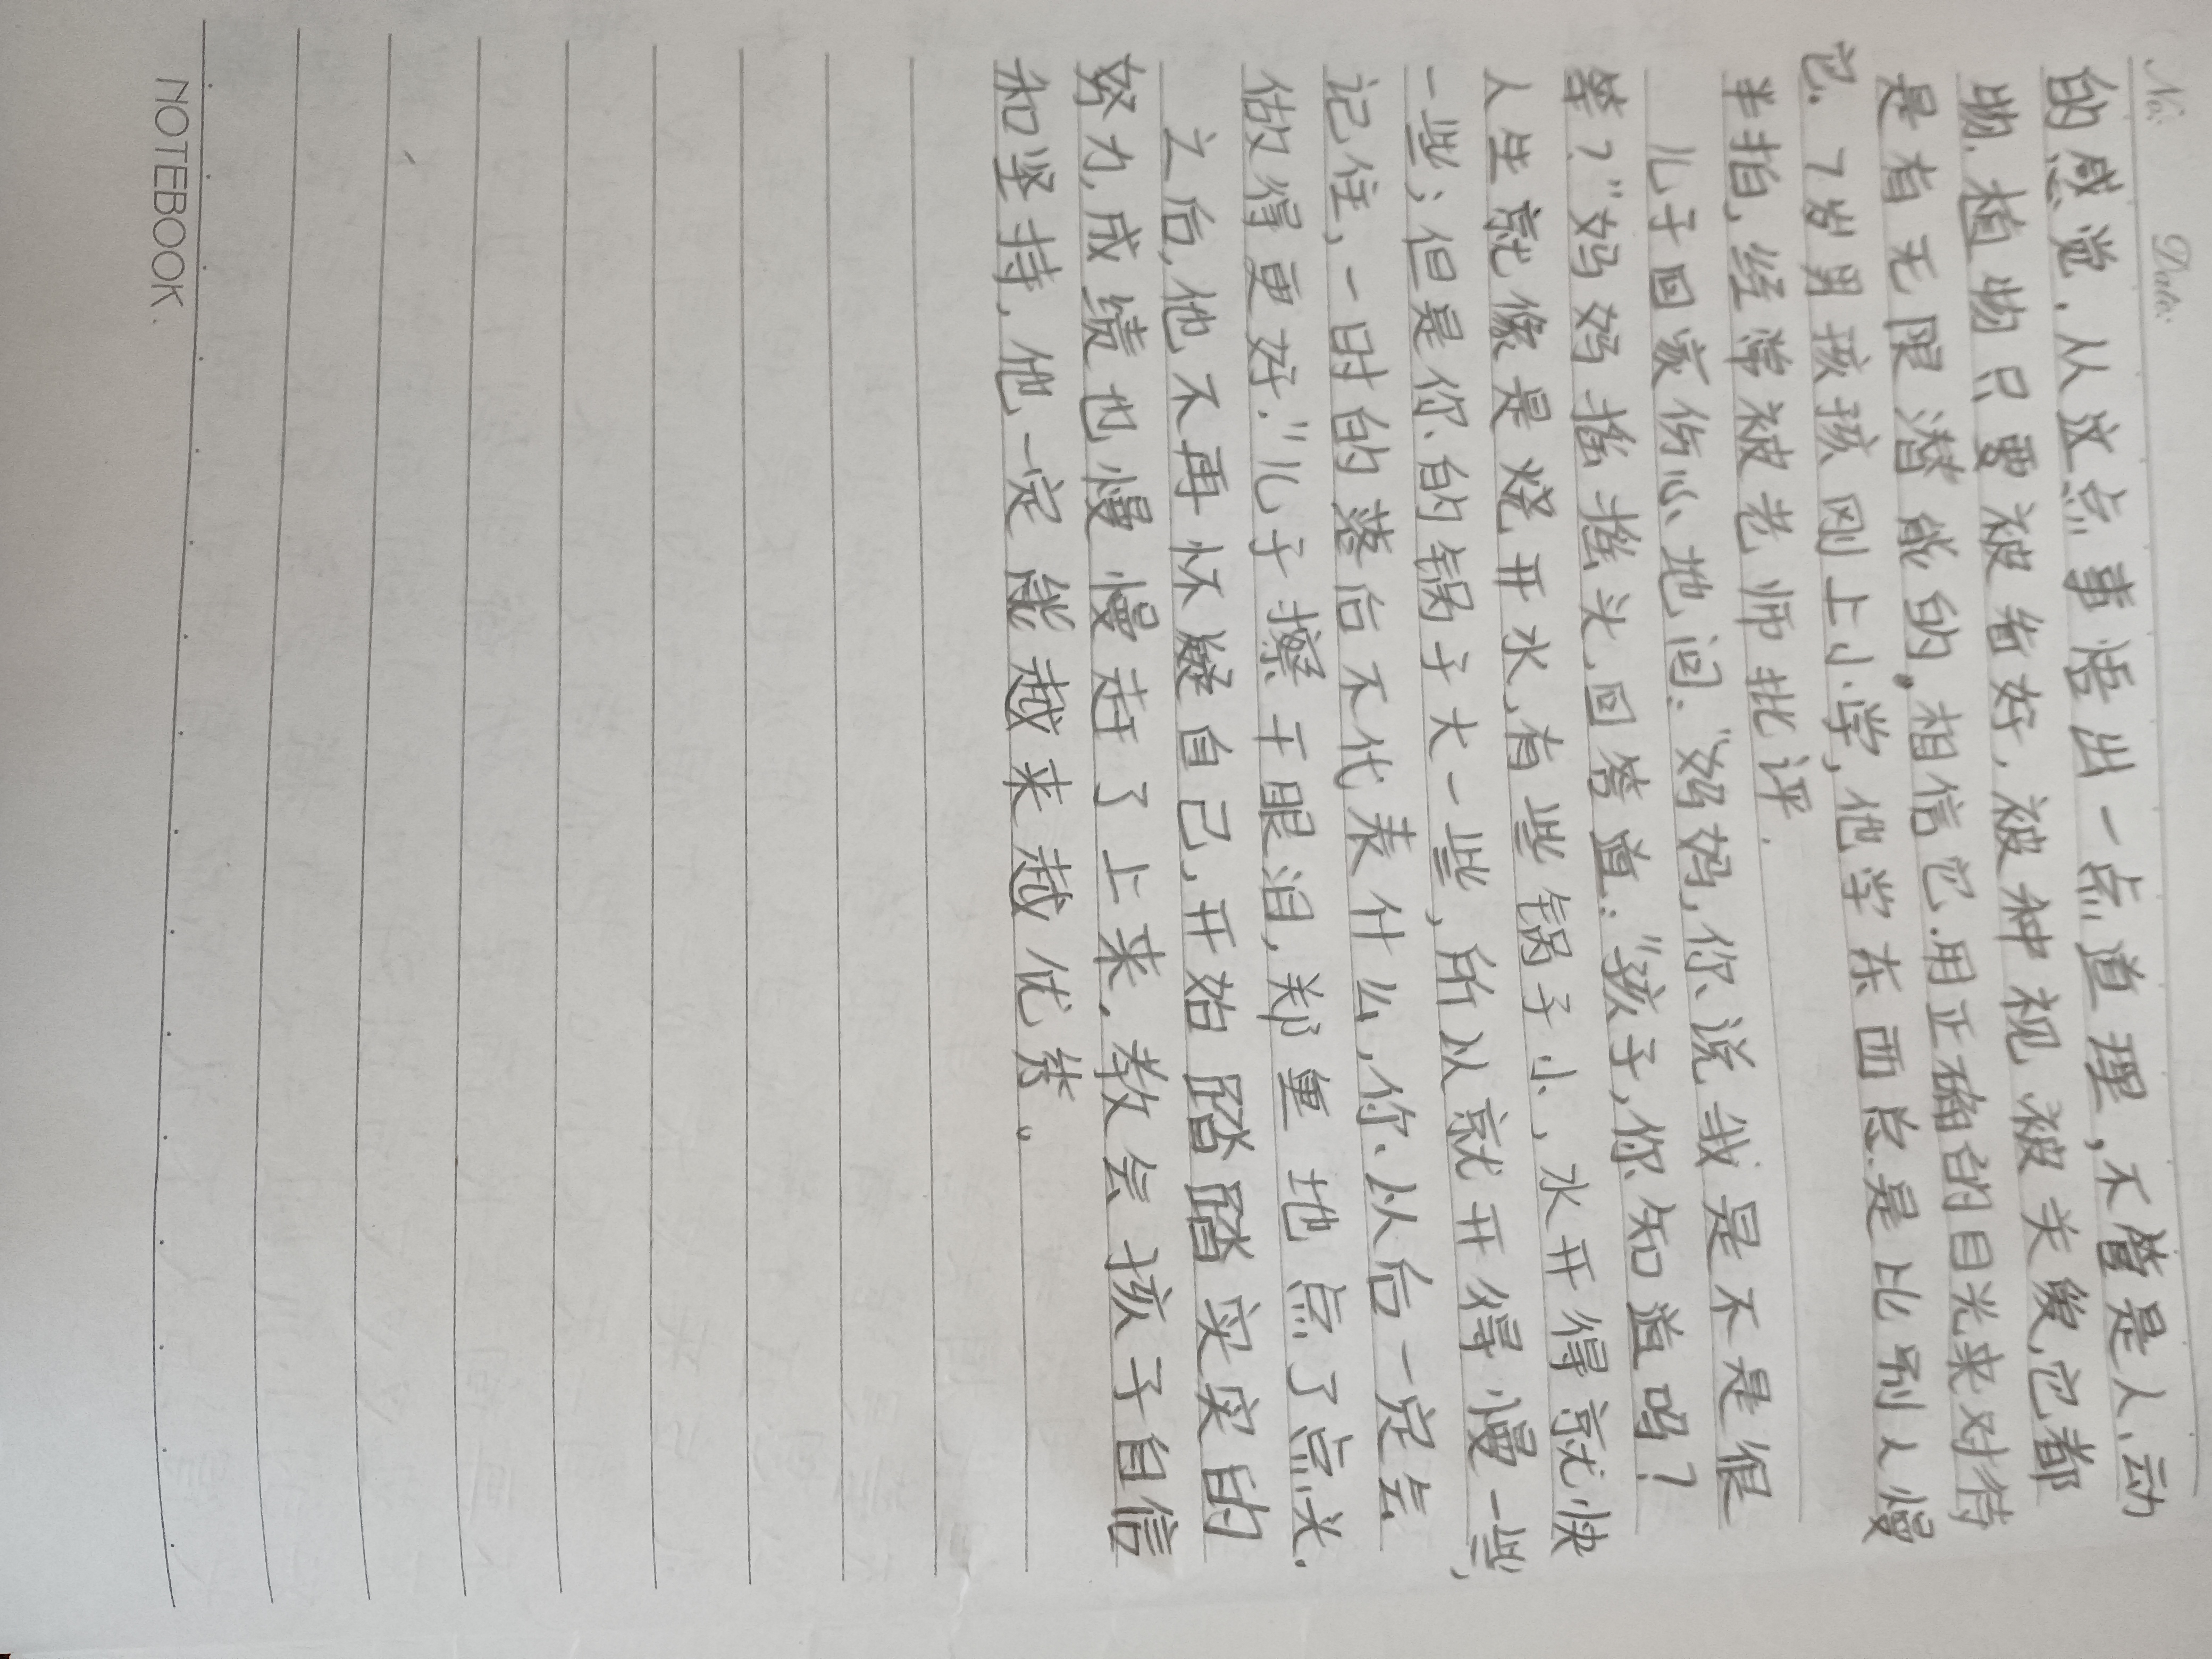 No.
Date
的感觉.从这点事悟出一点道理,不管是人、动
物.植物只要被看好.被种视.被关爱,它都
是有无限潜能的,相信它.用正确的目光来对待
它.7岁男孩孩刚上小学,他学东西总是比别人慢
半拍,经常被老师批评.
儿子回家伤心地问:“妈妈,你说我是不是很
笨?”妈妈摇摇头,回答道:“孩子,你知道吗?
人生就像是烧开水,有些锅子小,水开得就快
一些;但是你的锅子大一些,所以就开得慢一些,
记住,一时的落后不代表什么,你以后一定会
做得更好.”儿子擦干眼泪,郑重地点了点头.
之后,他不再怀疑自己,开始踏踏实实的
努力,成绩也慢慢赶了上来.教会孩子自信
和坚持,他一定能越来越优秀。
NOTEBOOK